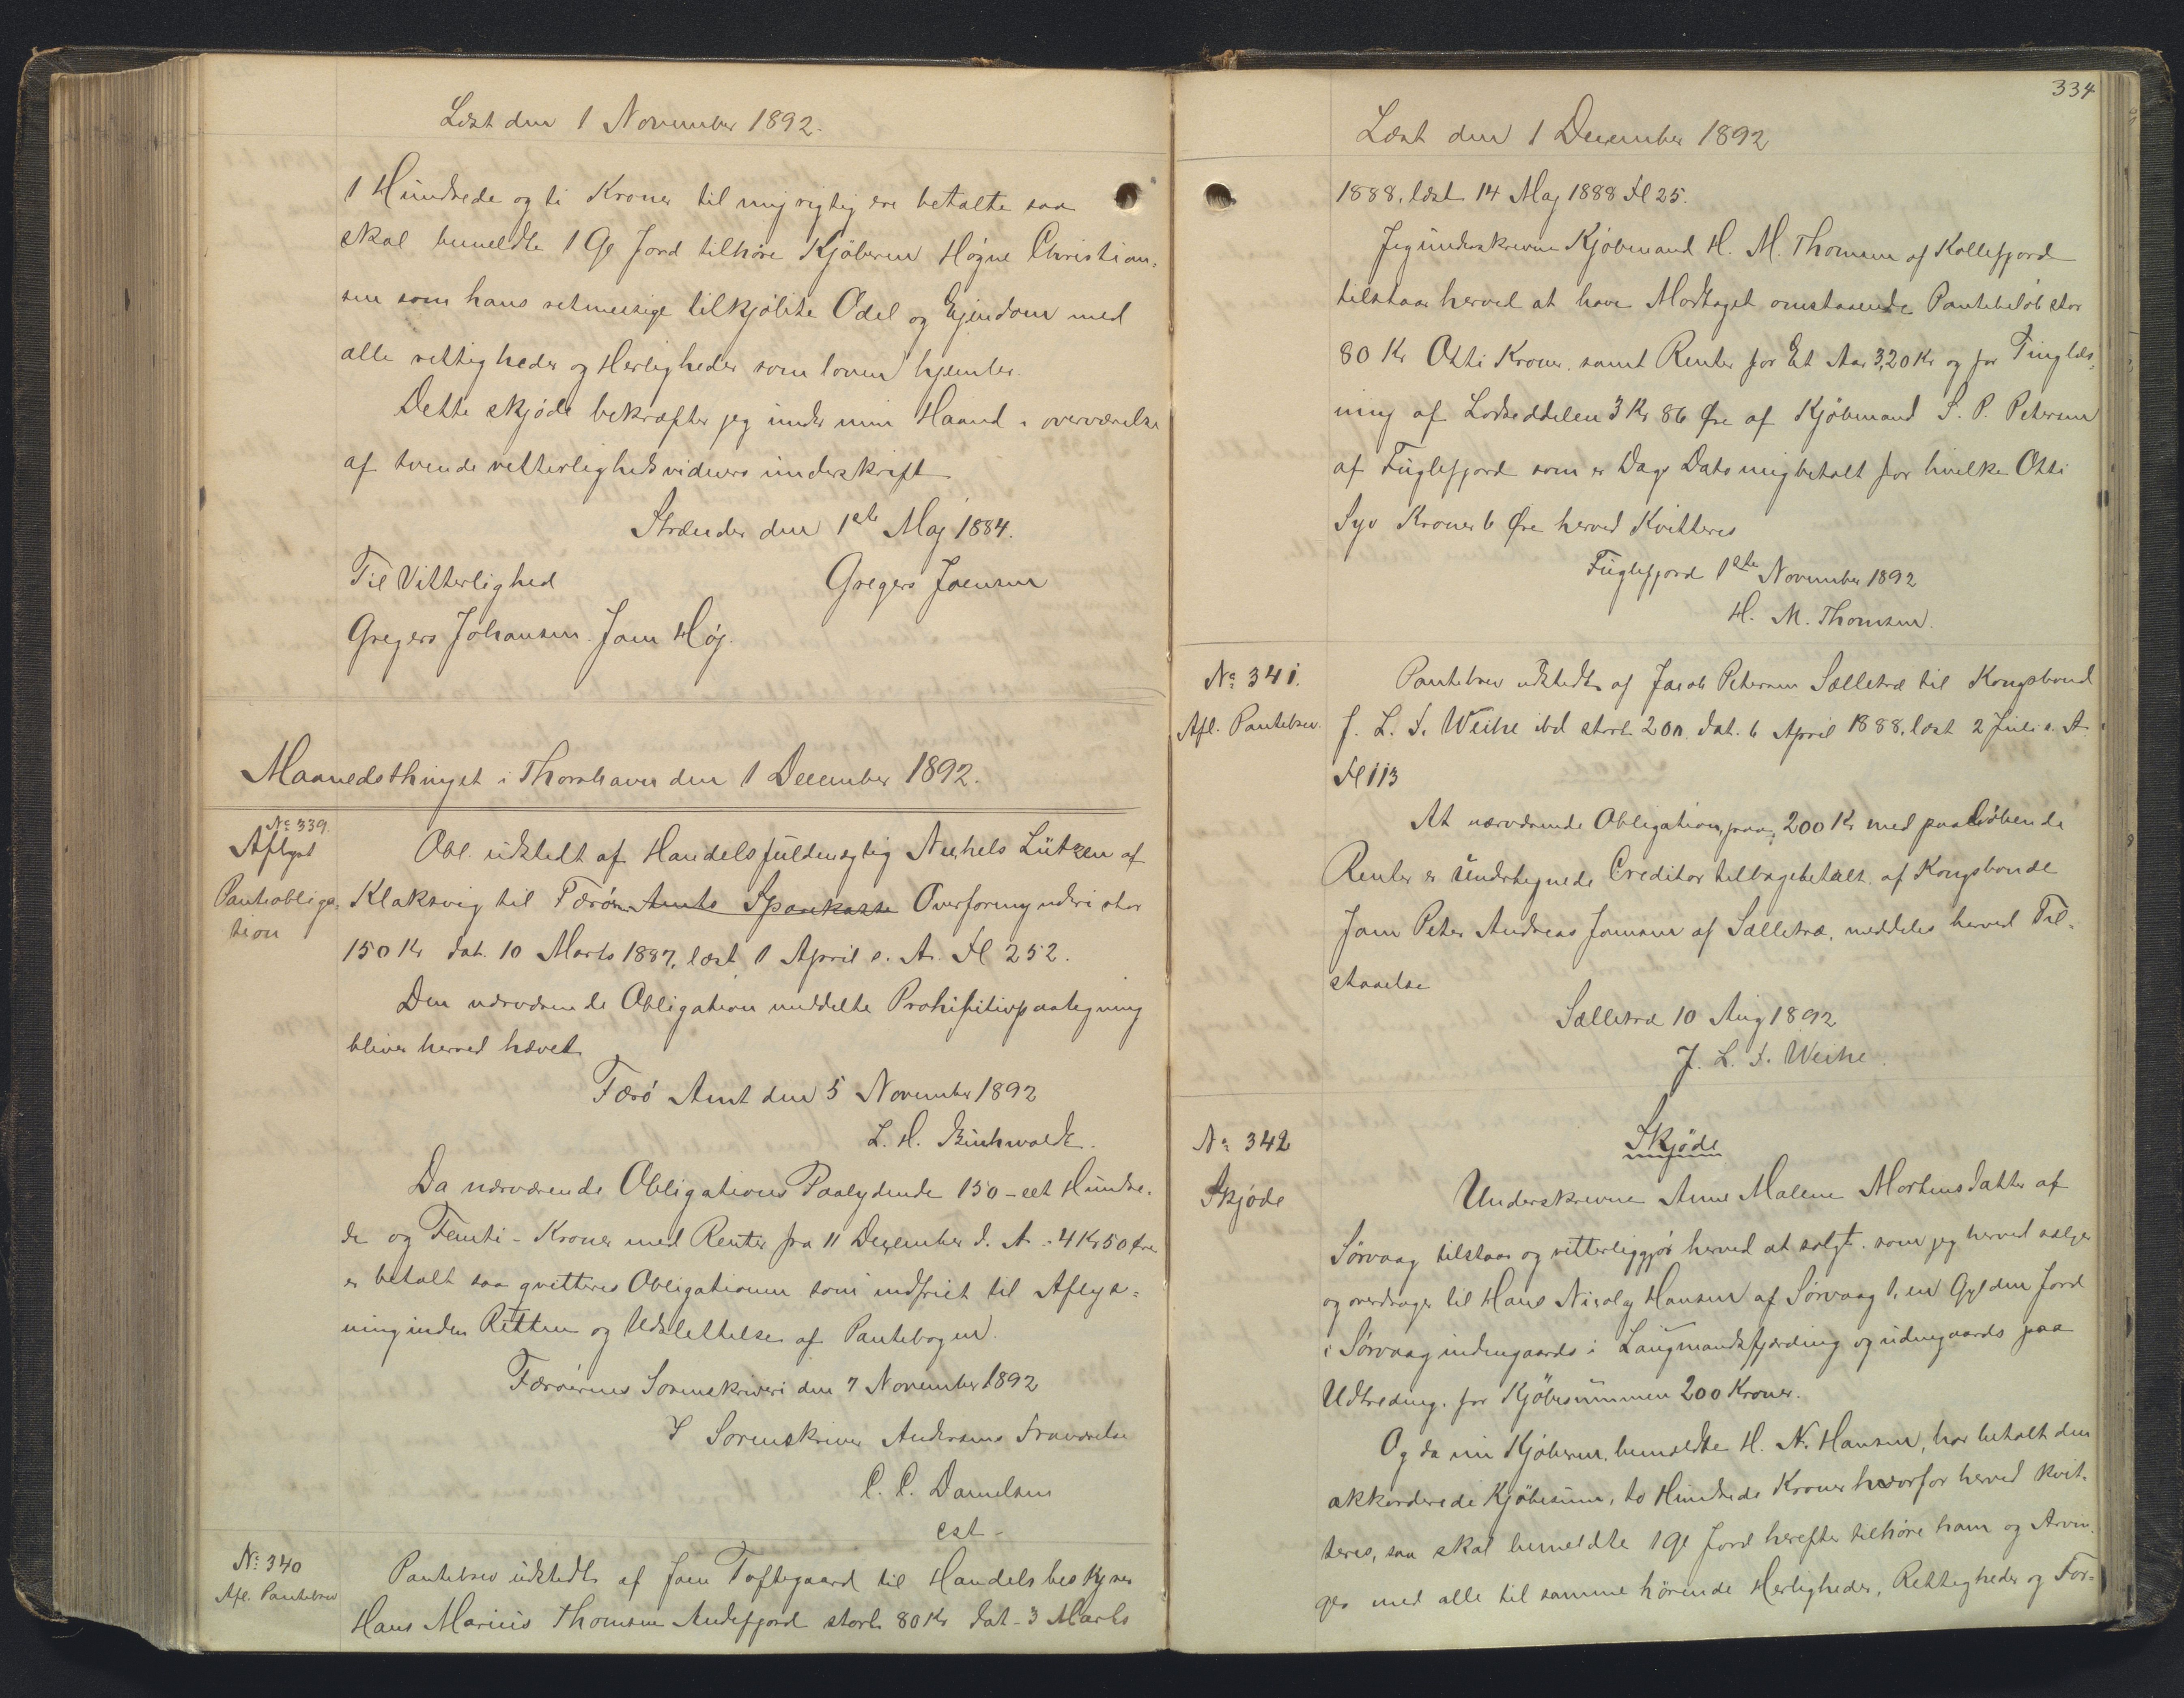 Læst den 1 November 1892.
1 Hundrede og ti Kroner til mig rigtig ere betalte saa
skal bemeldte 1 Gl Jord tilhøre Kjøberen Høgne Christian-
sen som hans retmæsige tilkjøbte Odel og Ejendom med
alle rettigheder og Herligheder som loven hjemler.
Dette skjøde bekræfter jeg under min Haand i overværelse
af tvende vitterligheds vidners underskrift
Strænder den 1ste Maj 1884.
Til Vitterlighed Gregers Joensen
Gregers Johansen. Joen Høj.
Maanedsthinget i Thorshavn den 1 December 1892.
No 339.
Aflyst
Panteobliga-
tion
Obl. udstedt af Handelsfuldmægtig Michels Lützen af
Klaksvig til Færø Amts Sparkasse Overformynderi stor
150 Kr dat. 10 Marts 1887, læst 1 April s. A. Fl 252.
Den nærværende Obligation meddelte Prohibitivpaategning
bliver herved hævet
Færø Amt den 5 November 1892
L. H. Buchwaldt.
Da nærværende Obligations Paalydende 150 - eet Hundre-
de og Femti - Kroner med Renter fra 11 Dezember d. A - 4 Kr 50 Øre
er betalt saa qvitteres Obligationen som indfriet til Aflys-
ning inden Retten og Udslettelse af Pantebogen.
Færøernes Sorenskriveri den 7 November 1892
I Sorenskriver Andersens Fraværelse
C. C. Danielsen
cst -
No 340
Afl. Pantebrev
Pantebrev udstedt af Joen Toftegaard til Handelsbestyrer
Hans Marius Thomsen Andefjord stort 80 Kr dat - 3 Marts
334
Læst den 1 December 1892
1888, læst 14 Maj 1888 Fl 25.
Jeg underskrevne Kjøbmand H. M. Thomsen af Kollefjord
tilstaar herved at have Modtaget omstaaende Pantebeløb stor
80 Kr Otti Kroner. samt Renter for Et Aar 3,20 Kr og for Tinglæs-
ning af Lodseddelen 3 Kr 86 Øre af Kjøbmand S. P. Petersen
af Fuglefjord som er Dags Dato mig betalt for hvilke Otti
Syv Kroner 6 Øre herved Kvitteres
Fuglefjord 1ste November 1892
H. M. Thomsen.
No 341.
Afl. Pantebrev.
Pantebrev udstedt af Jacob Petersen Sælletræ til Kongsbond
J. L. F. Weihe ibd stort 200. dat. 6 April 1888, læst 2 Juli s. A.
Fl 113
At nærværende Obligation, paa, 200 Kr med paaløbende
Renter er Undertegnede Creditor tilbagebetalt af Kongsbonde
Joen Peter Andreas Joensen af Sælletræ, meddeles herved Til-
staaelse
Sælletræ 10 Aug 1892
J. L. F. Weihe.
No 342
Skjøde
Skjøde
Underskrevne Anne Malene Mortensdatter af
Sørvaag tilstaar og vitterliggjør herved at solgt. som jeg herved sælger
og overdrager til Hans Nicolaj Hansen af Sørvaag 1, en Gylden Jord
i Sørvaag indengaards i Laugmandsfjærding og udengaards paa
Udtreding. for Kjøbesummen 200 Kroner.
Og da nu Kjøberen, bemeldte H. N. Hansen, har betalt den
akkorderede Kjøbesum, to Hundrede Kroner hvorfor herved kvit-
teres, saa skal bemeldte 1 Gl Jord herefter tilhøre ham og Arvin-
ger med alle til samme hørende Herligheder, Rettigheder og For-